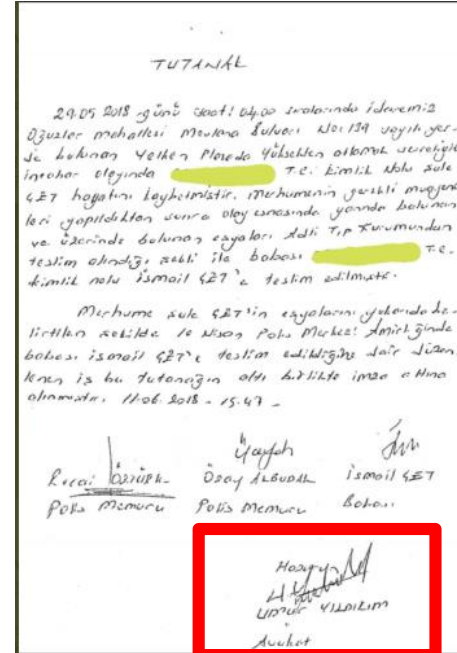 TUTANAK
29.05 2018 günü saat: 04.00 sıralarında idaremiz
Oğuzlar mahallesi Mevlana Bulvarı No:139 sayılı yer-
de bulunan Yelken Plazada Yüksekten atlamak suretiyle
intihar olayında T.C. kimlik Nolu Şule
ÇET hayatını kaybetmiştir. Merhumenin gerekli muayene
leri yapıldıktan sonra olay esnasında yanında bulunan
ve üzerinde bulunan eşyaları Adli Tıp Kurumundan
teslim alındığı şekli ile babası T.C.
kimlik nolu İsmail ÇET'e teslim edilmiştir.
Merhume Şule ÇET'in eşyalarını yukarıda be-
lirtilen şekilde 10 Nisan Polis Merkezi Amirliğinde
babası İsmail ÇET'e teslim edildiğine dair düzen
lenen iş bu tutanağın altı birlikte imza altına
alınmıştır. 11.06.2018 - 15.47 -
Recai ÖZTÜRK Özay İsmail ÇET
Polis Memuru Polis Memuru Babası
Hazırun
UMUR YILDIRIM
Avukat